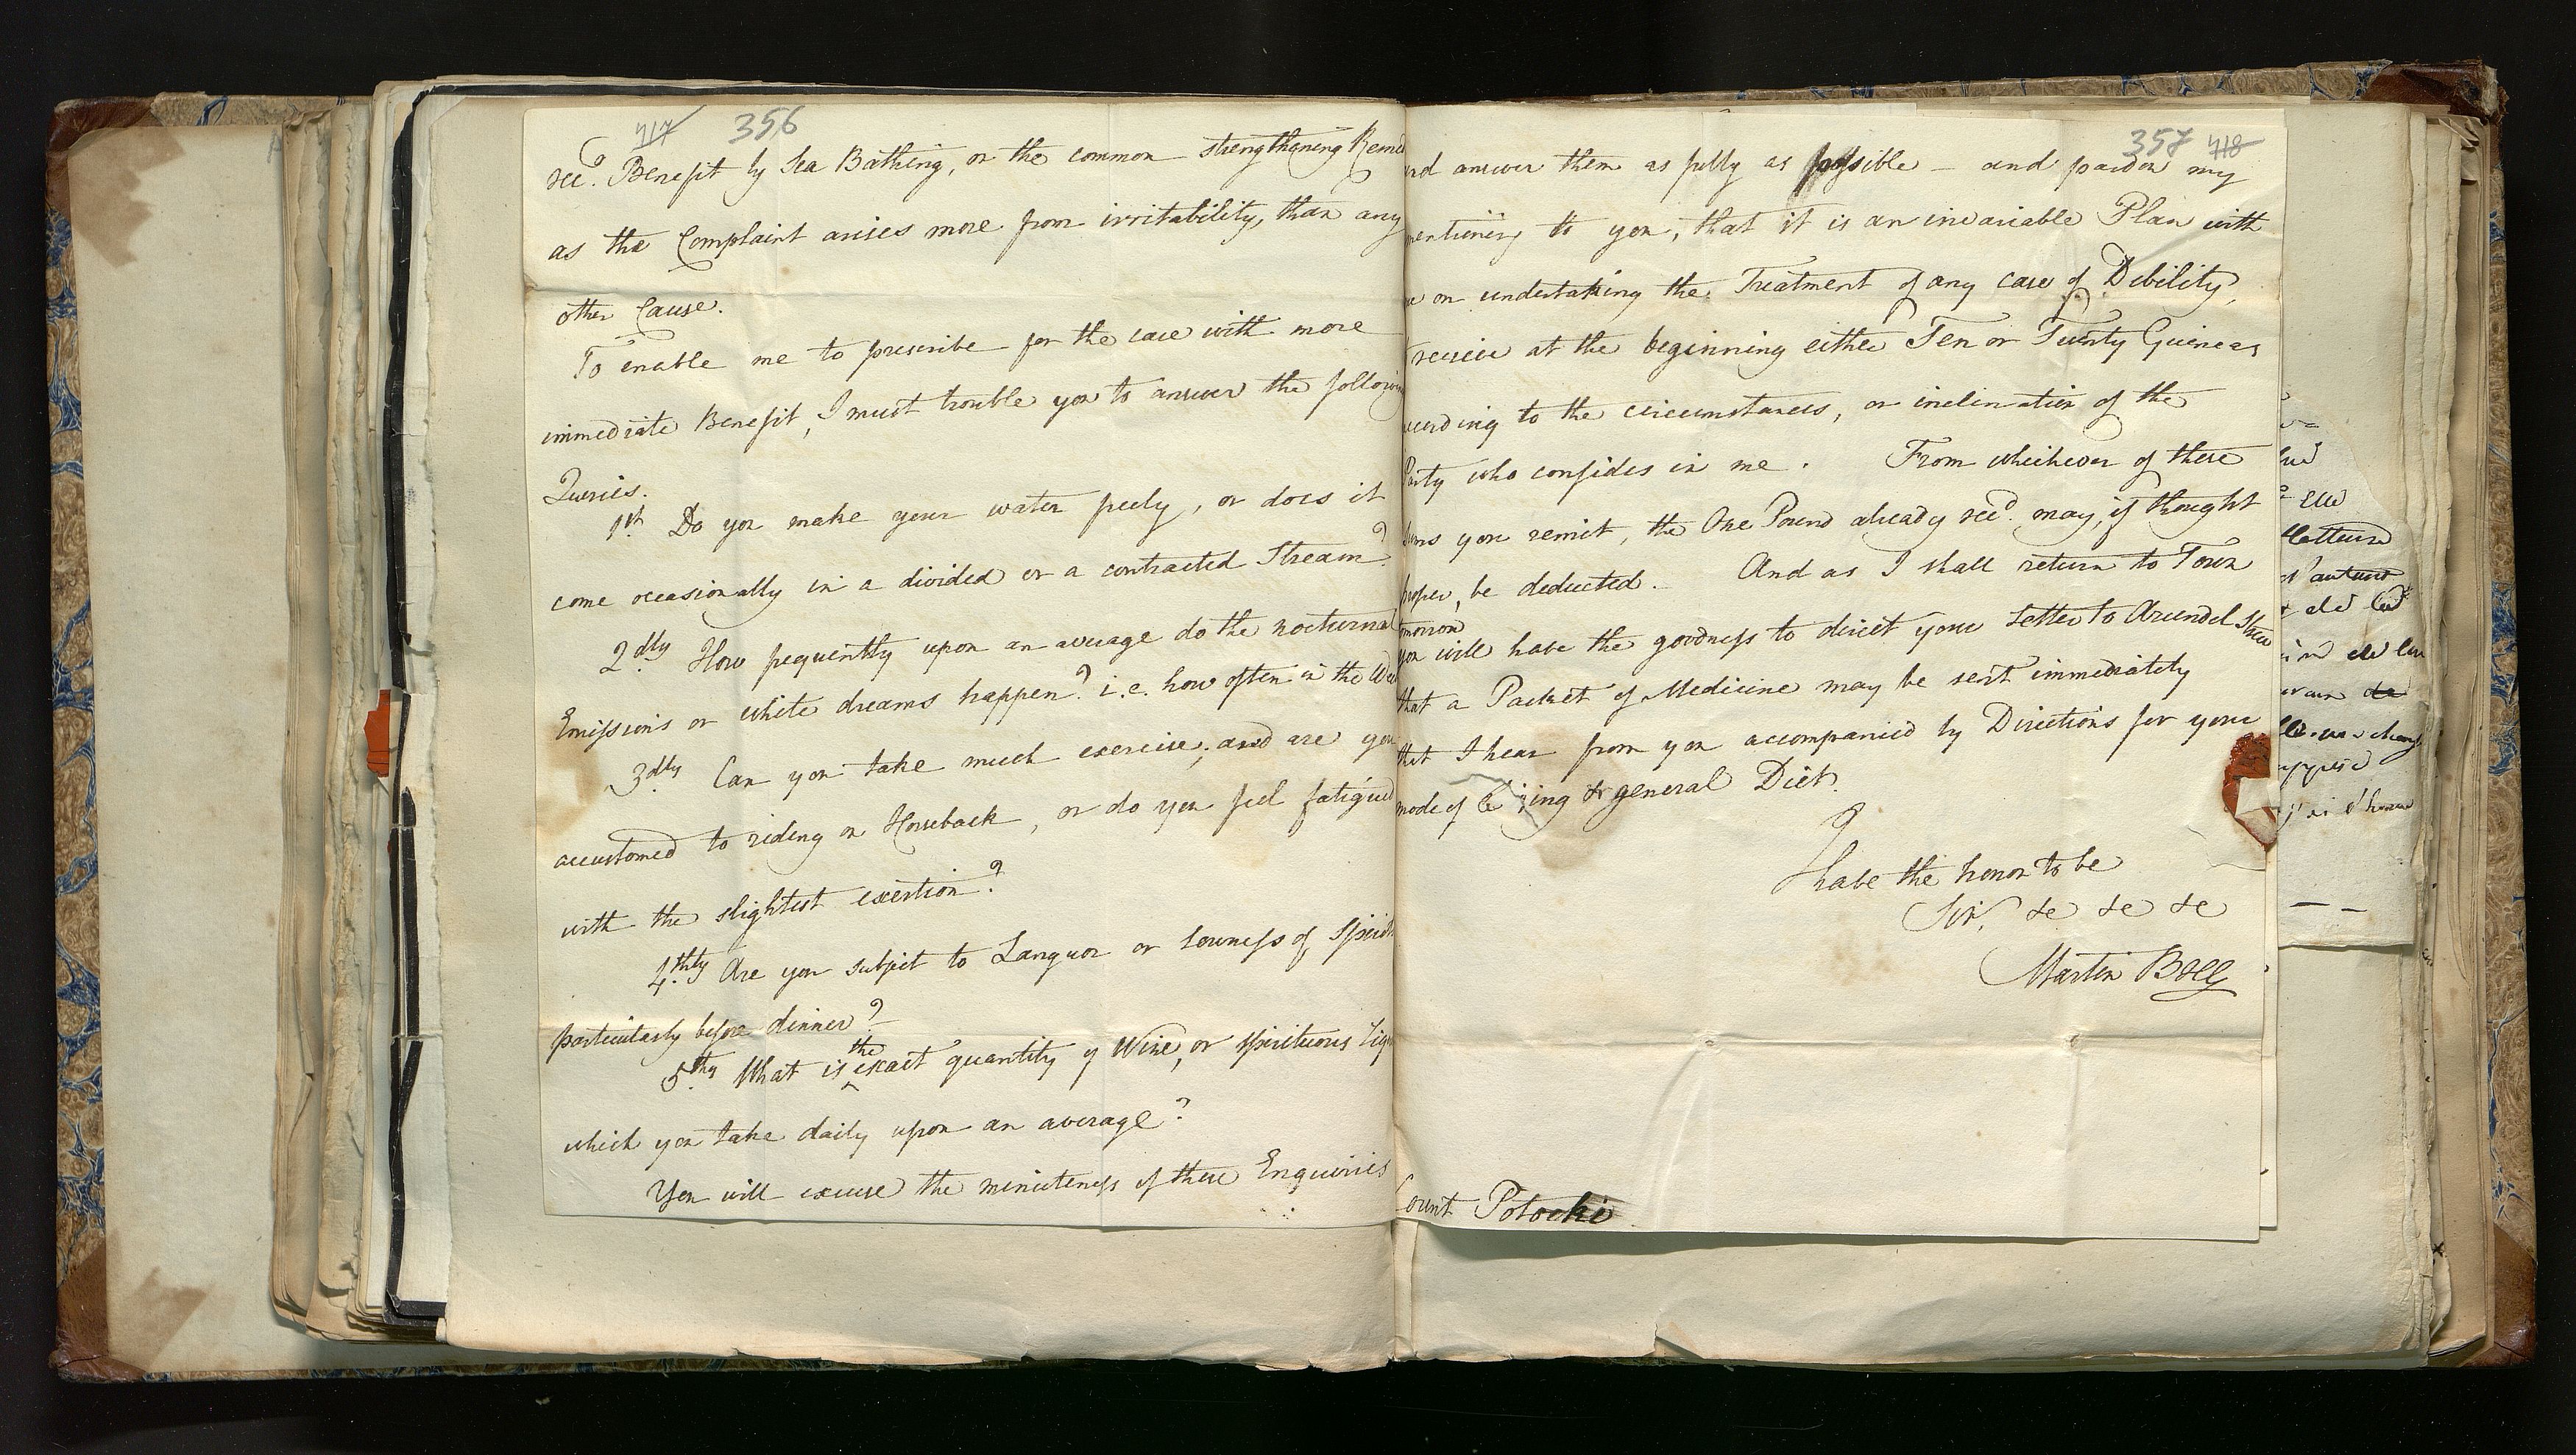 417 356
recd. Benefit by Sea Bathing, or the common strengthening Remed
as the Complaint arises more from irritability, than any
other Cause.
To enable me to prescribe for the case with more
immediate Benefit, I must trouble you to answer the following
Queries.
1st. Do you make your water freely, or does it
come occasionally in a divided or a contracted Stream?
2dly. How frequently upon an average do the nocturnal
Emissions or white dreams happen? i.e. how often in the We
3dly. Can you take much exercise; and are you
accustomed to riding on Horseback, or do you feel fatigued
with the slightest exertion?
4thly. Are you subject to Languor or Lowness of Spirits
particularly before dinner?
5thly. What is the exact quantity of Wine, or spirituous Liqu
which you take daily upon an average?
You will excuse the minuteness of these Enquiries
357 418
and answer them as fully as possible – and pardon my
mentioning to you, that it is an invariable Plan with
e on undertaking the Treatment of any case of Debility,
receive at the beginning either Ten or Twenty Guineas
cording to the circumstances, or inclination of the
Party who confides in me. From whichever of these
Sums you remit, the One Pound already recd. may, if thought
proper, be deducted. And as I shall return to Town
tomorrow
you will have the goodness to direct your Letter to Arundel Stree
that a Packet of Medicine may be sent immediately
that I hear from you accompanied by Directions for your
mode of ing & general Diet.
I have the honor to be
Sir, &c &c &c
Martin
Count Potocki